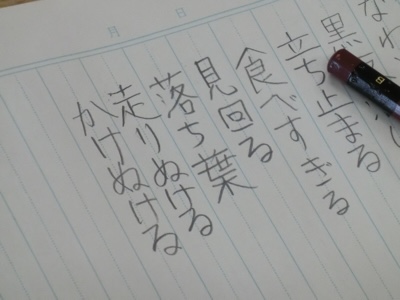 月 日
なわ
黒
立ち止まる
食べすぎる
見回る
落ち葉
走りぬける
かけぬける